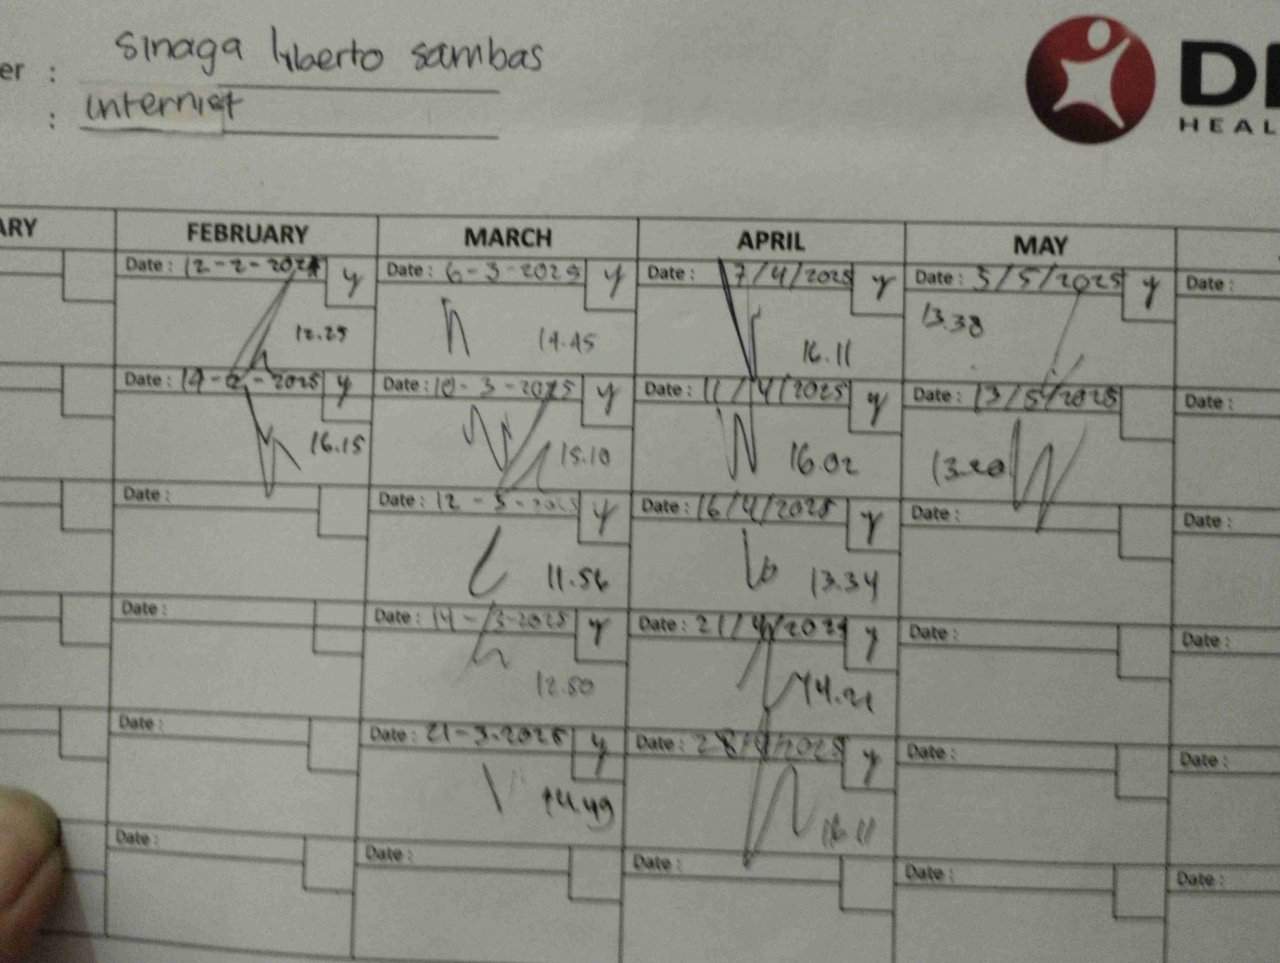 er : Sinaga liberto sambas
: internist
DE
HEAL
ARY FEBRUARY MARCH APRIL MAY
Date : 12-2-2025 y Date : 6-3-2025 y Date : 7/4/2025 y Date : 5/5/2025 y Date :
12.25 14.45 16.11 13.38
Date : 19-2-2025 y Date : 10-3-2025 y Date : 11/4/2025 y Date : 13/5/2025 Date :
16.15 15.10 16.02 13.20
Date : Date : 12-3-2025 y Date : 16/4/2025 y Date : Date :
11.56 13.34
Date : Date : 14-3-2025 y Date : 21/4/2025 y Date : Date :
12.50 14.21
Date : Date : 21-3-2025 y Date : 28/4/2025 y Date : Date :
14.49 16.11
Date : Date : Date : Date : Date :